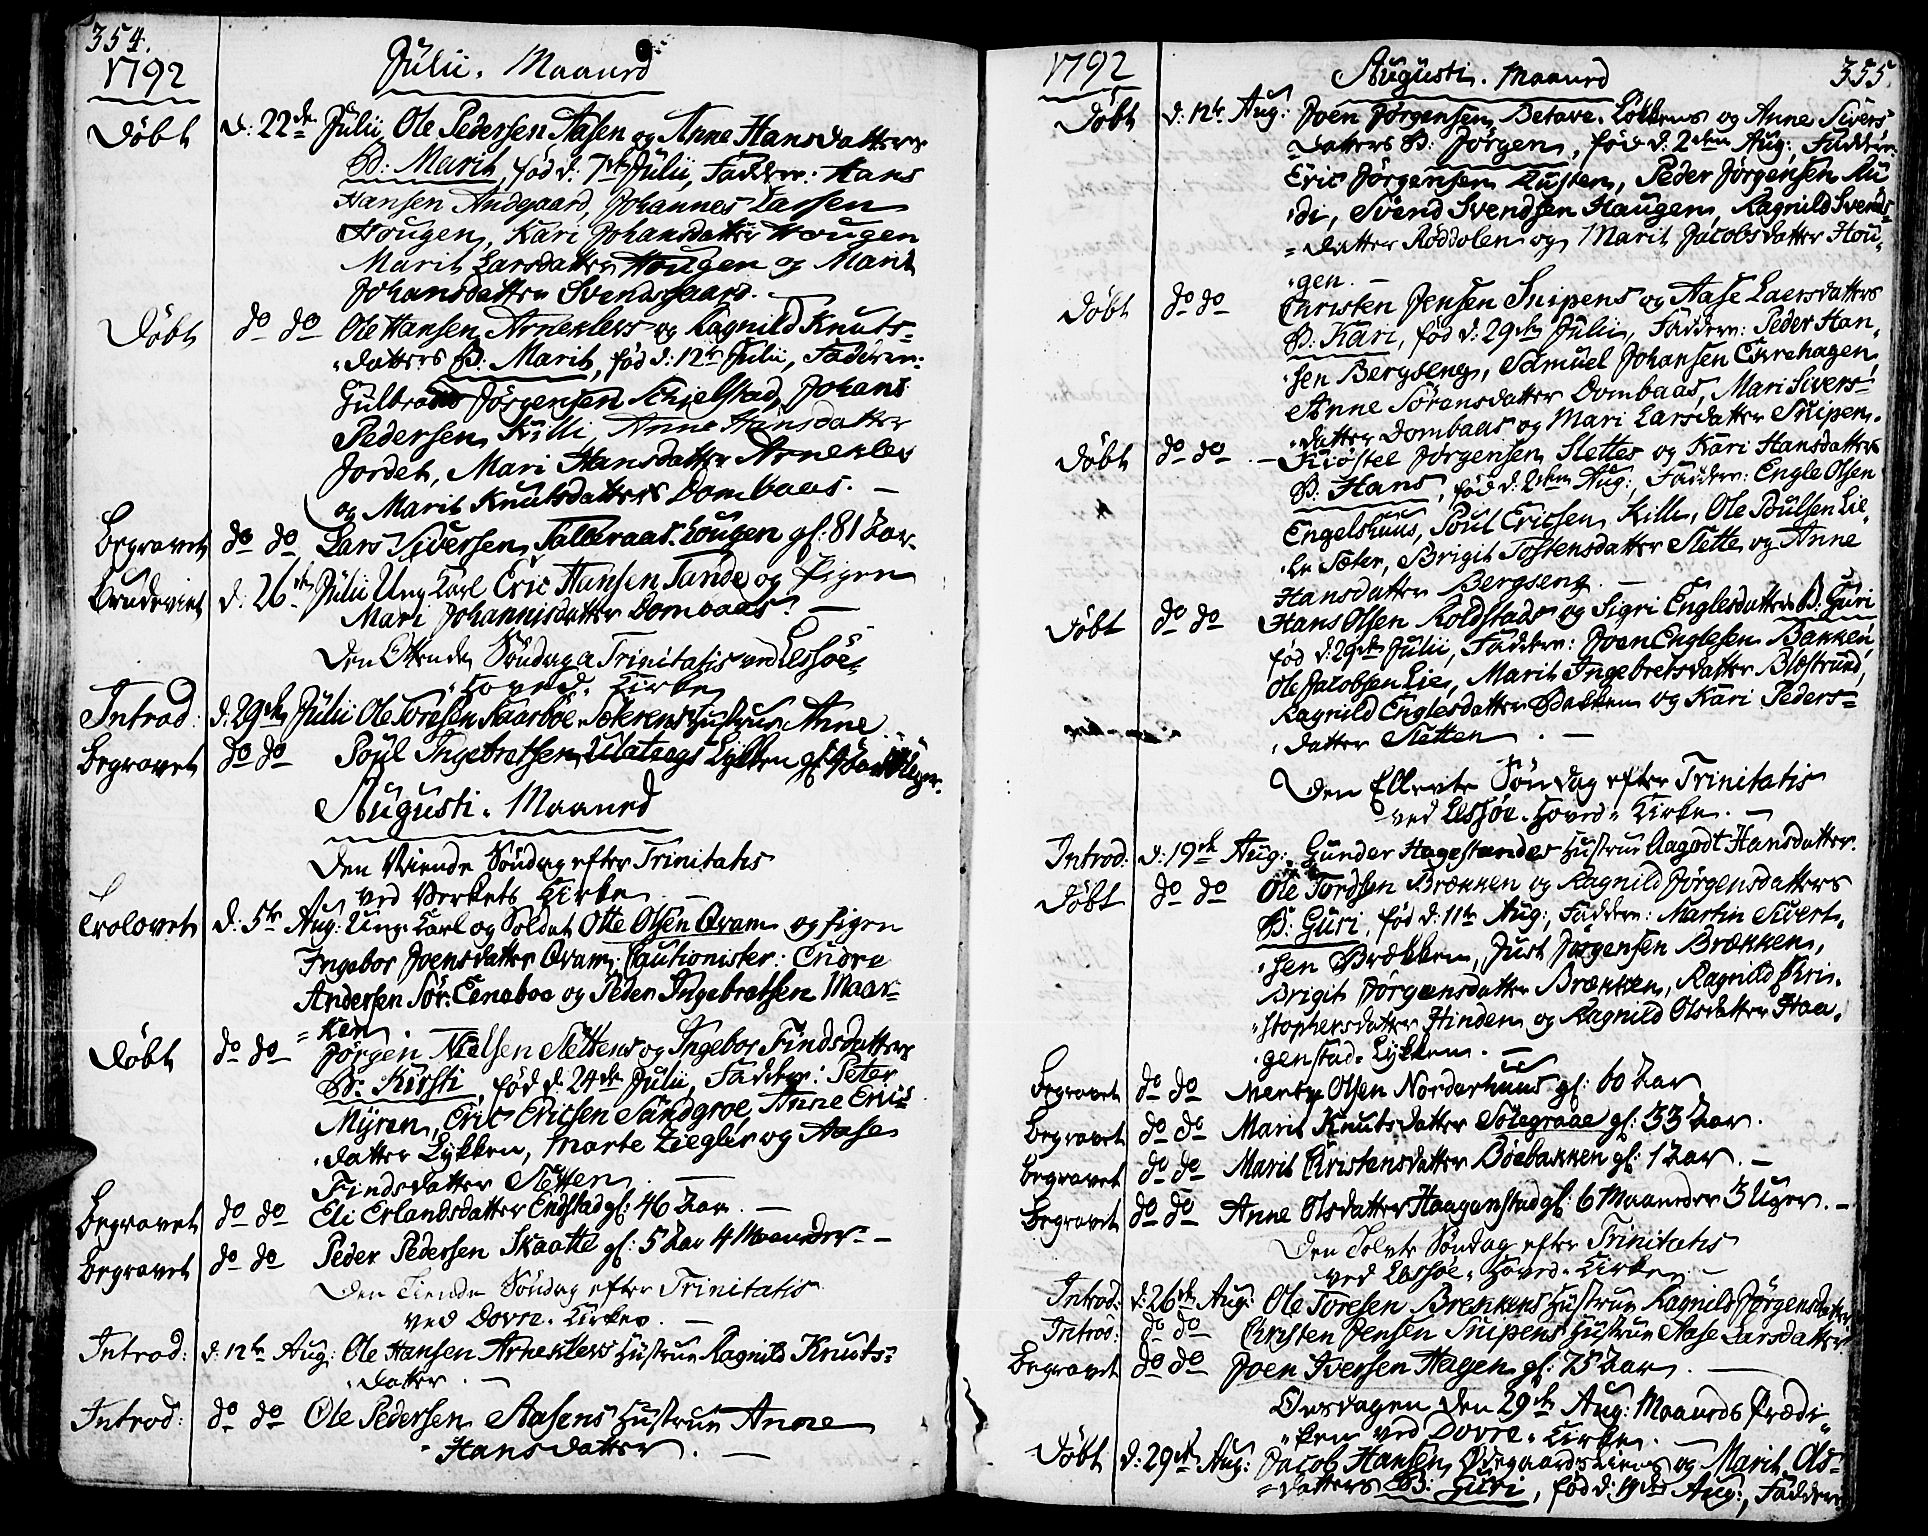 354.
1792
Julii. Maaned
Døbt d: 22de Julii Ole Pedersen Aasen og Anne Hansdatters
B: Marit, fød d: 7de Julii, Faddere: Hans
Hansen Andgaard, Johannes Larsen
Hougen, Kari Johansdatter Hougen
Marit Larsdatter Hougen og Marit
Johansdatter Svendsgaard.
Døbt do do Ole Hansen Arneklevs og Ragnild Knuts-
datters B: Marit, fød d: 12te Julii, Faddere:
Gulbrand Jørgensen Schielstad, Johans
Pedersen Killi, Anne Hansdatter
Jordet, Mari Hansdatter Arneklev
og Marit Knutsdatters Dombaas. –
Begravet do do Lars Siversen Talleraas. Hougen gl: 81 Aar.
Brudeviet d. 26de Julii Ung Karl Eric Hansen Tande og Pigen
Mari Johannisdatter Dombaas. –
Den Ottende Søndag a Trinitatis ved Lessøe-
Hoved-Kirke
Introd: d. 29de Julii Ole Toresen Hustrue Anne
Begravet do do Poul Ingebretsen Lykken gl:
Augusti. Maaned
Den Niende Søndag efter Trinitatis
ved Verkets Kirke
Trolovet d. 5te Aug: Ung Karl og Soldat Otte Olsen Qvam og Pigen
Ingebor Joensdatter Qvam, Cautionister: Endre
Andersen Sør-Eeneboe og Peder Ingebretsen Maar-
ken
Døbt do do Jørgen Nielsen Slettens og Ingebor Findsdatters
B: Kirsti, fød d. 24de Julii, Faddere: Peter
Myren, Eric Ericsen Sandgroe, Anne Erics-
datter Lykken, Marte Ziegler og Aase
Findsdatter Sletten.
Begravet do do Eli Erlandsdatter Endstad gl: 46 Aar. –
Begravet do do Peder Pedersen Skaatte gl: 5 Aar 4 Maaneder –
Den Tiende Søndag efter Trinitatis
ved Dovre-Kirke. –
Introd: d: 12te Aug: Ole Hansen Arneklevs Hustrue Ragnild Knuts-
datter. –
Introd: do do Ole Pedersen Aasens Hustrue Anne
Hansdatter. –
1792
Augusti. Maaned
355.
Døbt d. 12te Aug: Joen Jørgensen Betave. Løkkens og Anne Sivers
datters B: Jørgen, fød d: 2den Aug:, Faddere:
Eric Jørgensen Rusten, Peder Jørgensen Ru
di, Svend Svendsen Haugen, Ragnild Svends-
datter Røddolen og Marit Jacobsdatter Hou-
gen. –
Døbt do do Christen Jensen Snipens og Aase Laersdatters
B: Kari, fød d: 29de Julii, Faddere: Peder Han-
sen Bergseng, Samuel Johansen Eggehagen
Anne Sørensdatter Dombaas, Mari Sivers-
datter Dombaas og Mari Larsdatter Snipen.
Døbt do do Kiøstel Jørgensen Slettes og Kari Hansdatters
B: Hans, fød d. 2den Aug:, Faddere: Engle Olsen
Engelshuus, Poul Ericsen Killi, Ole Poulsen Lie-
Sæter, Brigit Tostensdatter Slette og Anne
Hansdatter Bergseng. –
Døbt do do Hans Olsen Koldstads og Sigri Englesdatters B: Guri
fød d: 29de Julii, Faddere: Joen Englesen Bakken
Ole Jacobsen Lie, Marit Ingebretsdatter Blestrund,
Ragnild Englesdatter Bakken og Kari Peders-
datter Sletten. –
Den Ellevte Søndag efter Trinitatis
ved Lessøe-Hoved-Kirke. –
Introd: d: 19de Aug: Gunder Hagestandes Hustrue Aagodt Hansdatter.
Døbt do do Ole Tordsen Brækken og Ragnild Jørgensdatters
B: Guri, fød d: 11te Aug:, Faddere: Martin Sivert-
sen Brækken, Just Jørgensen Brækken,
Brigit Jørgensdatter Brækken, Ragnild Chri-
stophersdatter Hinden og Ragnild Olsdatter Haa-
genstad-Lykken. –
Begravet do do Olsen Norderhuus gl: 60 Aar
Begravet do do Marit Knutsdatter Solegraae gl: 33 Aar.
Begravet do do Marit Kristensdatter Bøebakken gl: 1 Aar. –
Begravet do do Anne Olsdatter Haagenstad gl: 6 Maaneder 3 Uger. –
Den Tolvte Søndag efter Trinitatis
ved Lessøe-Hoved-Kirke –
Introd: d: 26de Aug: Ole Toresen Brekkens Hustrue Ragnild Jørgensdatter
Introd: do do Christen Jensen Snipens Hustrue Aase Larsdatter
Begravet do do Joen Iversen Helgen gl: 75 Aar. –
Onsdagen den 29de Aug: Maaneds Prædi-
ken ved Dovre-Kirke. –
Døbt d. 29de Aug: Jacob Hansen Ødegaardsliens og Marit Ols-
datters B: Guri, fød d: 19de Aug:, Faddere